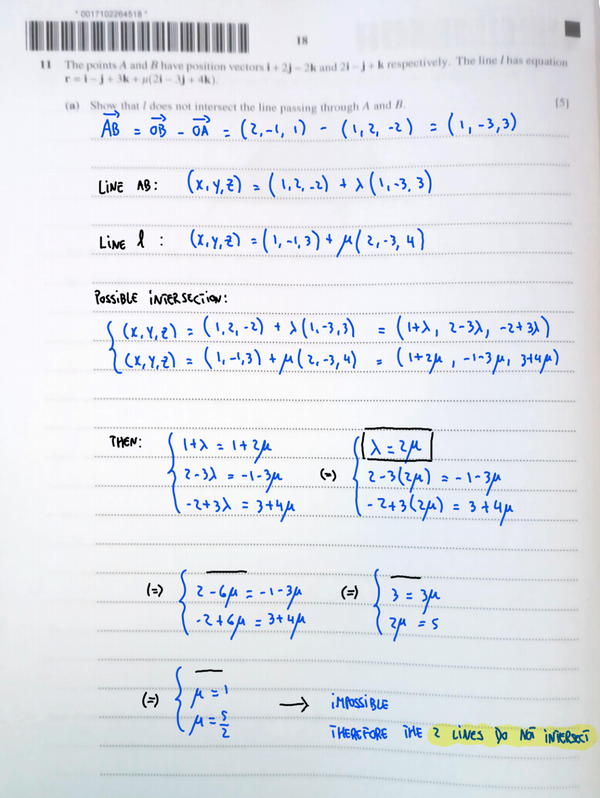 * 0017102264518 *
18
11 The points A and B have position vectors i + 2j − 2k and 2i − j + k respectively. The line l has equation
r = i − j + 3k + μ(2i − 3j + 4k).
(a) Show that l does not intersect the line passing through A and B. [5]
AB→ = OB→ - OA→ = (2,-1, 1) - (1, 2, -2) = (1, -3,3)
LINE AB: (x,y,z) = (1,2,-2) + λ(1,-3,3)
LINE l : (x,y,z) = (1,-1,3) + μ(2,-3, 4)
POSSIBLE INTERSECTION:
(x,y,z) = (1,2,-2) + λ(1,-3,3) = (1+λ, 2-3λ, -2+3λ)
(x,y,z) = (1,-1,3) + μ(2,-3,4) = (1+2μ, -1-3μ, 3+4μ)
THEN: { 1+λ = 1+2μ { λ = 2μ
2-3λ = -1-3μ (=) 2-3(2μ) = -1-3μ
-2+3λ = 3+4μ -2+3(2μ) = 3+4μ
(=) { — (=) { —
2-6μ = -1-3μ 3 = 3μ
-2+6μ = 3+4μ 2μ = 5
(=) { —
μ = 1 → IMPOSSIBLE
μ = 5/2 THEREFORE THE 2 LINES DO NOT INTERSECT